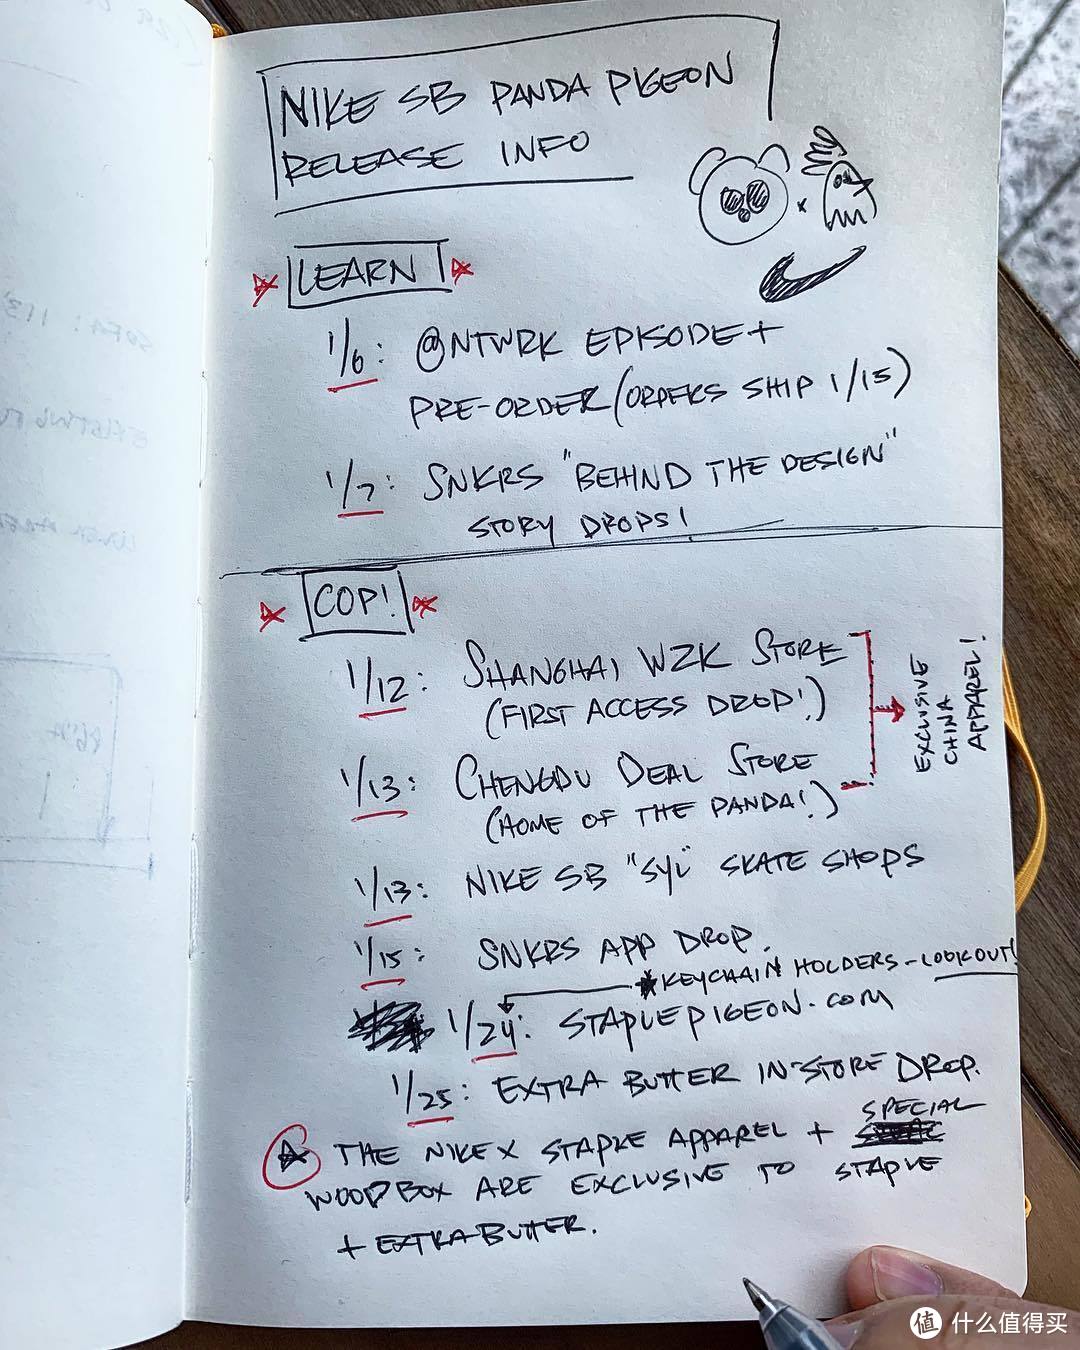 NIKE SB PANDA PIGEON
RELEASE INFO
x
LEARN!
1/6: @NTWRK EPISODE +
PRE-ORDER (ORDERS SHIP 1/15)
1/7: SNKRS "BEHIND THE DESIGN"
STORY DROPS!
COP!
1/12: SHANGHAI WZK STORE
(FIRST ACCESS DROP!)
1/13: CHENGDU DEAL STORE
(HOME OF THE PANDA!)
EXCLUSIVE
CHINA
APPAREL!
1/13: NIKE SB "SYL" SKATE SHOPS
1/15: SNKRS APP DROP.
KEYCHAIN HOLDERS - LOOKOUT!
1/24: STAPLEPIGEON.COM
1/25: EXTRA BUTTER IN-STORE DROP.
THE NIKE X STAPLE APPAREL + SPECIAL
WOODBOX ARE EXCLUSIVE TO STAPLE
+ EXTRA BUTTER.
值 什么值得买